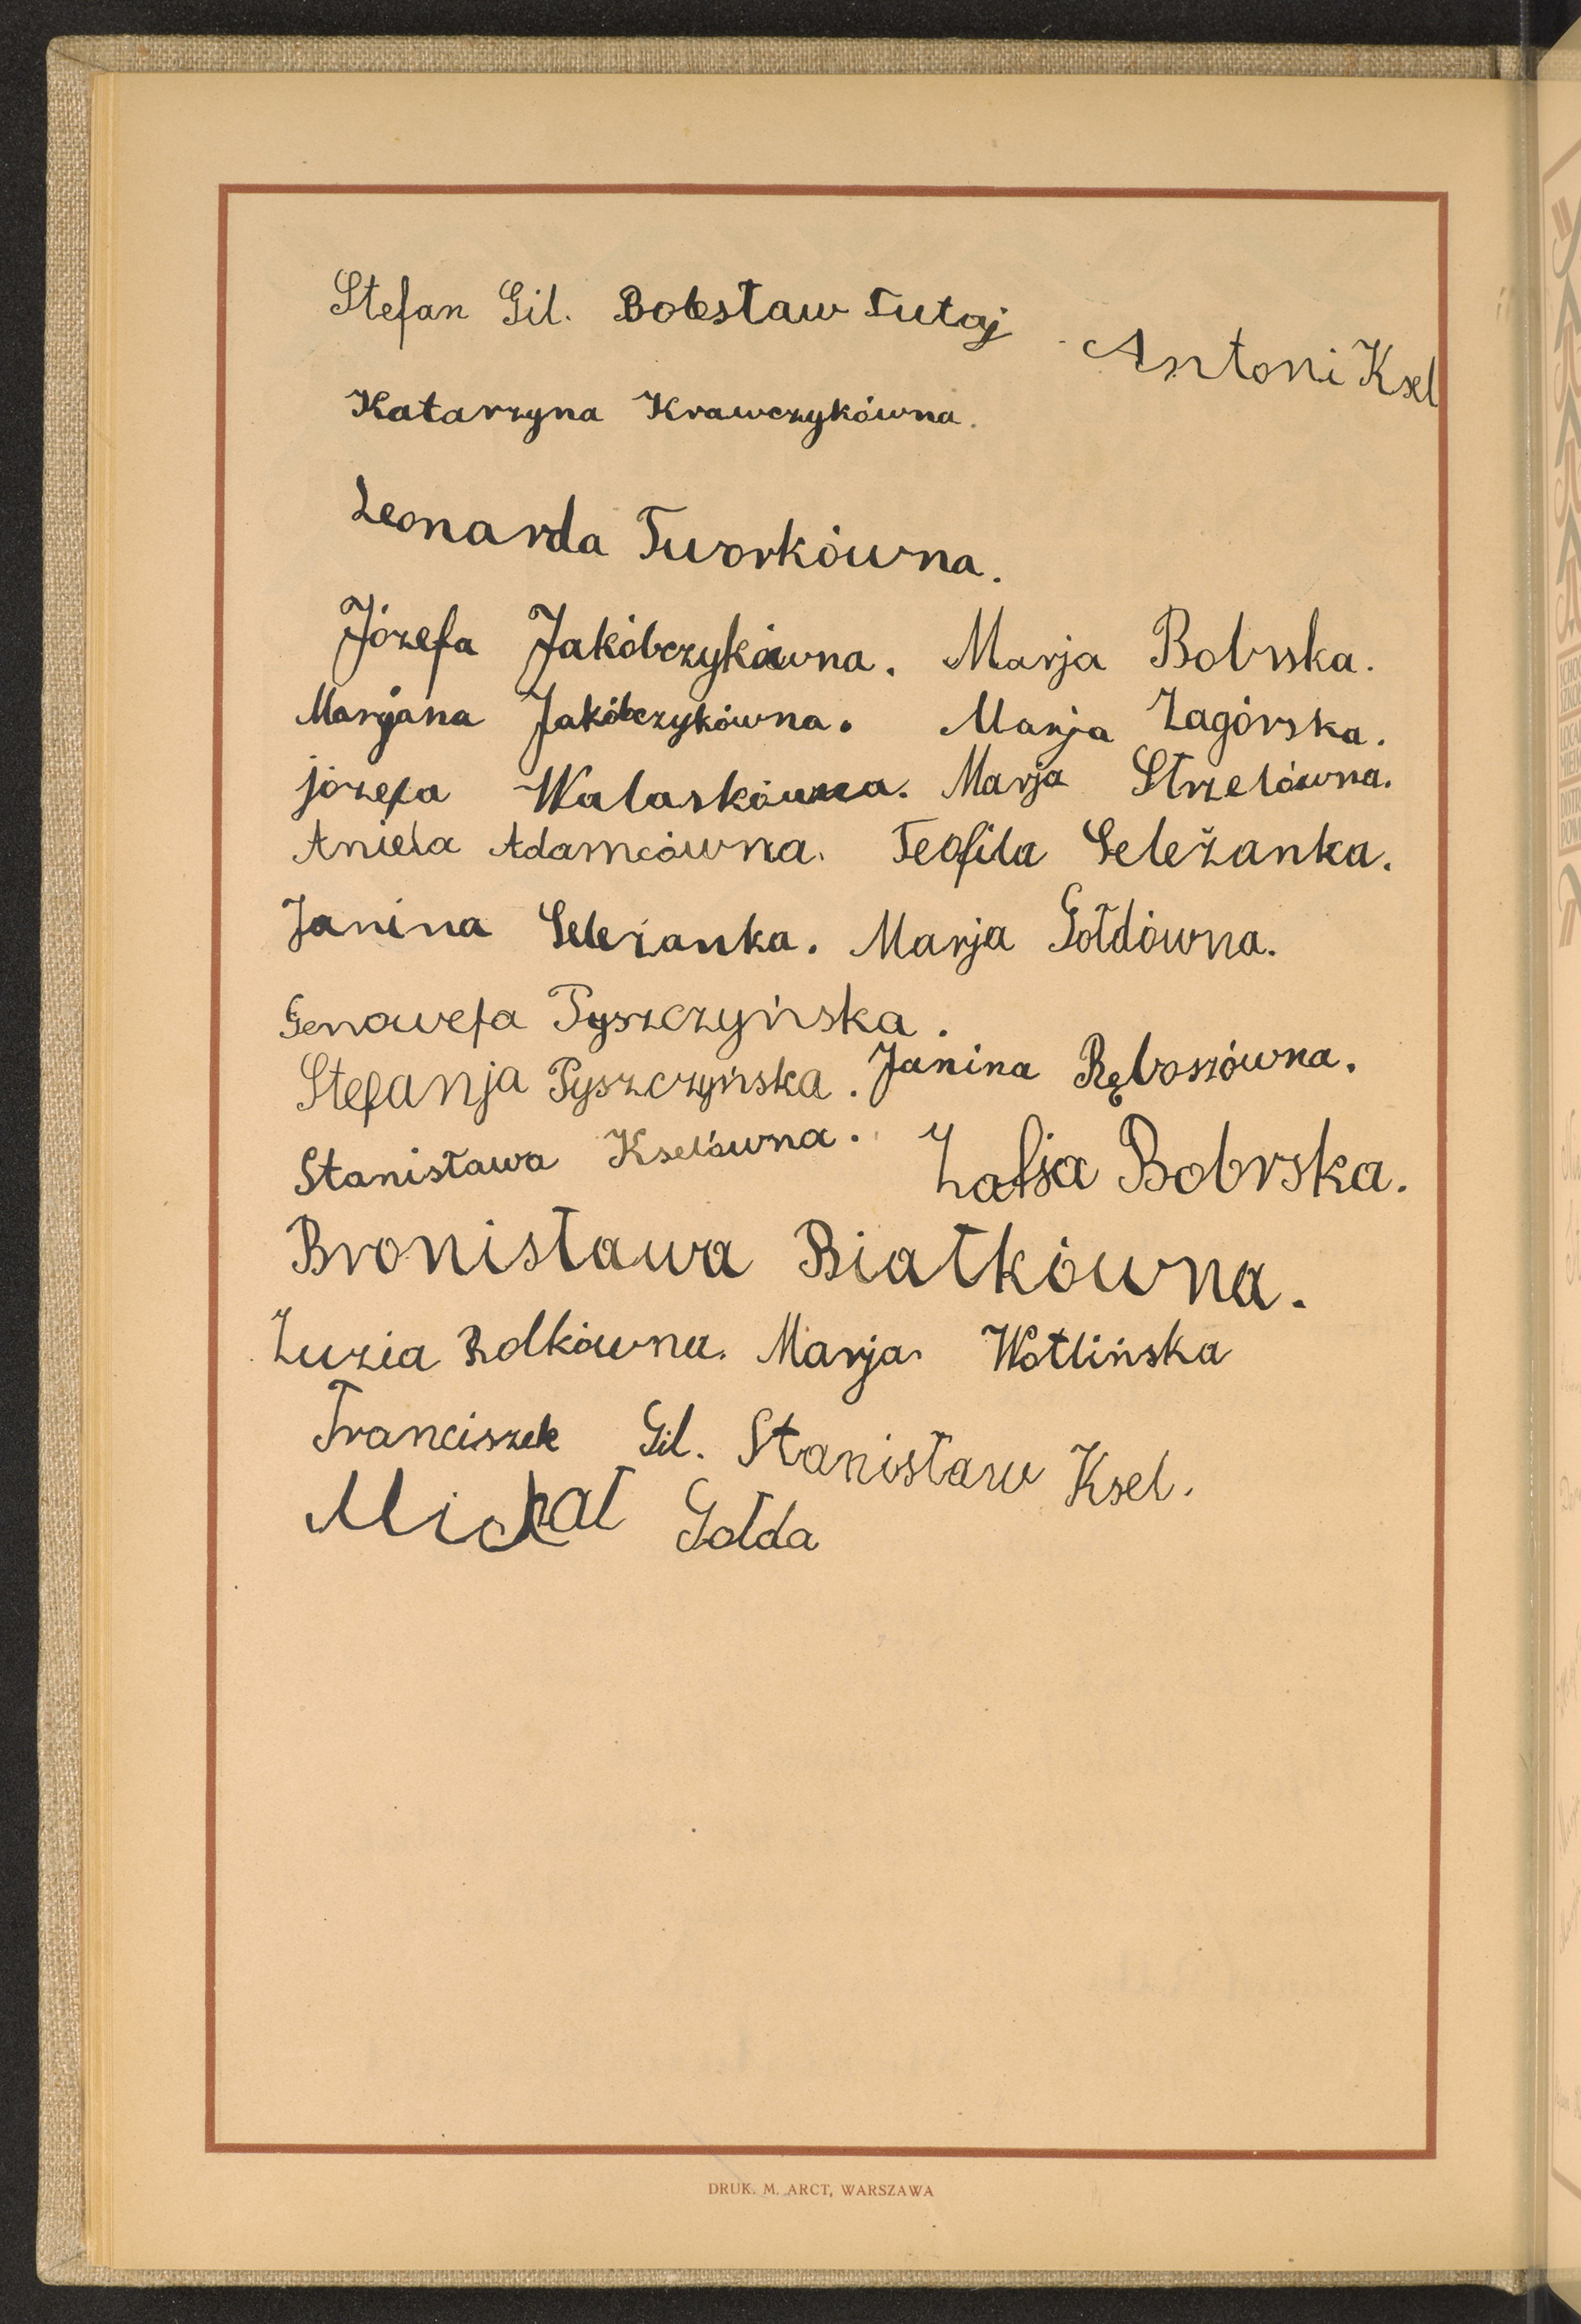 Stefan Gil. Bolesław Tutaj Antoni Ksel
Katarzyna Krawczykówna.
Leonarda Tworkówna.
Józefa Jakóbczykówna. Marja Bobrska.
Marjana Jakóbczykówna. Marja Zagórska.
józefa Walaskówna. Marja Strzelówna.
Aniela Adamcówna. Teofila Geleżanka.
Janina Geleżanka. Marja Gołdówna.
Genowefa Pyszczyńska.
Stefanja Pyszczyńska. Janina Ręboszówna.
Stanisława Kselówna. Zofja Bobrska.
Bronisława Białkówna.
Zuzia Rolkówna. Marja Wotlińska
Franciszek Gil. Stanisław Ksel.
Michał Gołda
DRUK. M. ARCT, WARSZAWA